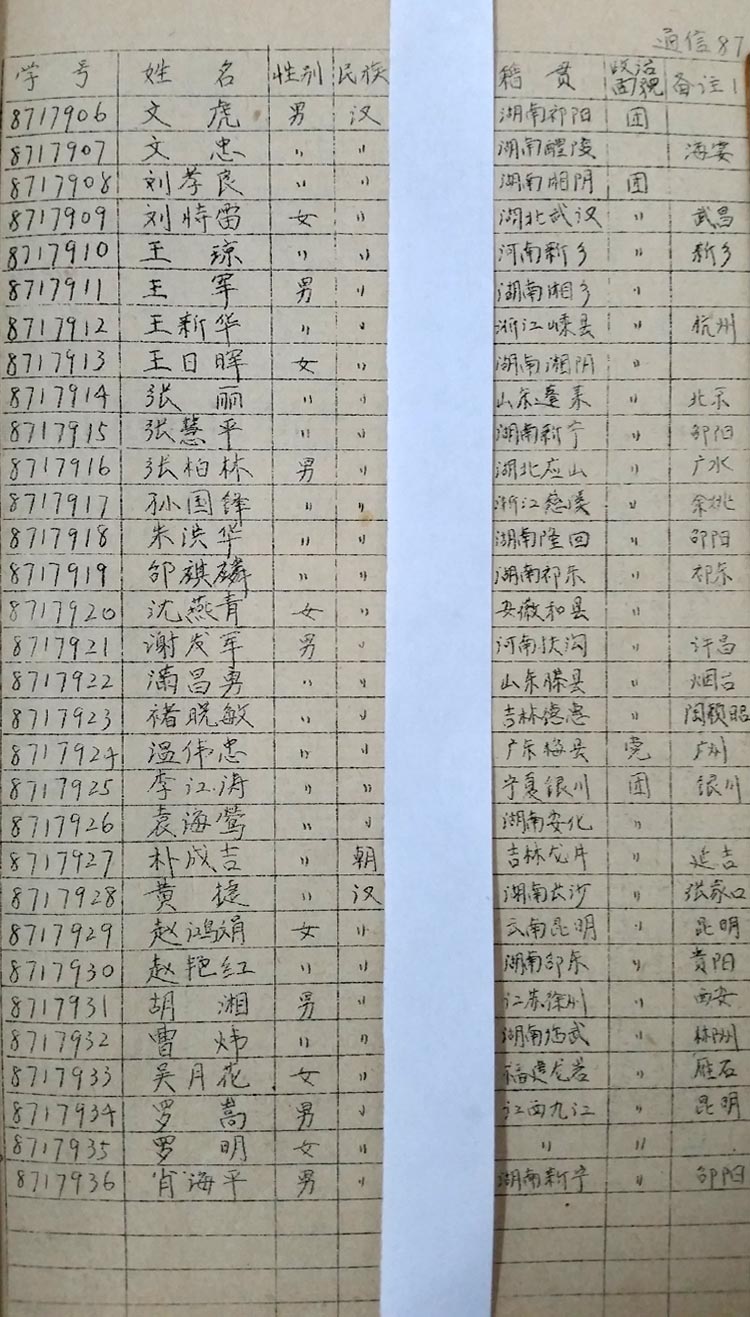 通信87
学号 姓名 性别 民族 籍贯 政治面貌 备注1
8717906 文虎 男 汉 湖南祁阳 团
8717907 文忠 〃 〃 湖南醴陵
8717908 刘孝良 〃 〃 湖南湘阴 团
8717909 刘特雷 女 〃 湖北武汉 〃 武昌
8717910 王琼 〃 〃 河南新乡 〃 新乡
8717911 王军 男 〃 湖南湘乡 〃
8717912 王新华 〃 〃 浙江嵊县 〃 杭州
8717913 王日晖 女 〃 湖南湘阴 〃
8717914 张丽 〃 〃 山东蓬莱 〃 北京
8717915 张慧平 〃 〃 湖南新宁 〃 邵阳
8717916 张柏林 男 〃 湖北应山 〃 广水
8717917 孙国锋 〃 〃 浙江慈溪 〃 余姚
8717918 朱洪华 〃 〃 湖南隆回 〃 邵阳
8717919 邹祺麟 〃 〃 湖南祁东 〃 祁东
8717920 沈燕青 女 〃 安徽和县 〃
8717921 谢发军 男 〃 河南扶沟 〃 许昌
8717922 满昌勇 〃 〃 山东滕县 〃 烟台
8717923 褚晓敏 〃 〃 吉林德惠 〃
8717924 温伟忠 〃 〃 广东梅县 党 广州
8717925 李江涛 〃 〃 宁夏银川 团 银川
8717926 袁海莺 〃 〃 湖南安化 〃
8717927 朴成吉 〃 朝 吉林龙井 〃 延吉
8717928 黄捷 〃 汉 湖南长沙 〃 张家口
8717929 赵鸿娟 女 〃 云南昆明 〃 昆明
8717930 赵艳红 〃 〃 湖南邵东 〃 贵阳
8717931 胡湘 男 〃 江苏徐州 〃 西安
8717932 曹炜 〃 〃 湖南临武 〃 郴州
8717933 吴月花 女 〃 福建龙岩 〃 雁石
8717934 罗嵩 男 〃 江西九江 〃 昆明
8717935 罗明 女 〃 〃 〃
8717936 肖海平 男 〃 湖南新宁 〃 邵阳